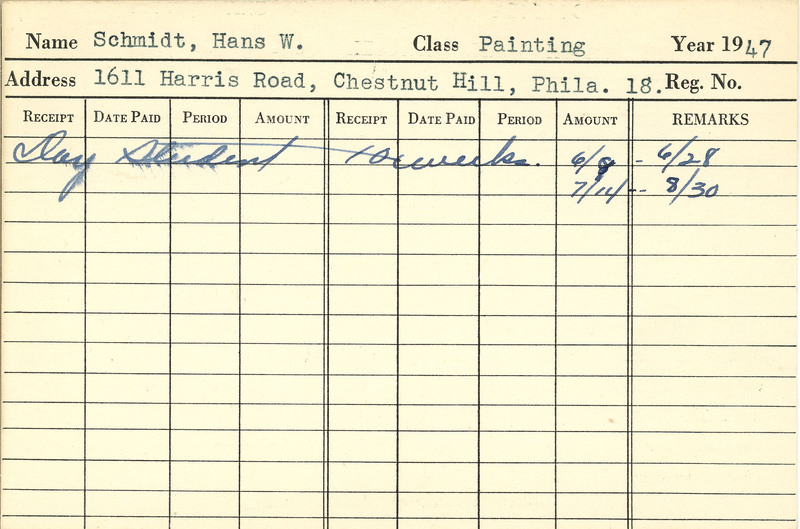 Name Schmidt, Hans W. Class Painting Year 1947
Address 1611 Harris Road, Chestnut Hill, Phila. 18. Reg. No.
RECEIPT DATE PAID PERIOD AMOUNT RECEIPT DATE PAID PERIOD AMOUNT REMARKS
Day Student weeks. 6/8 - 6/28
7/11 -- 8/30